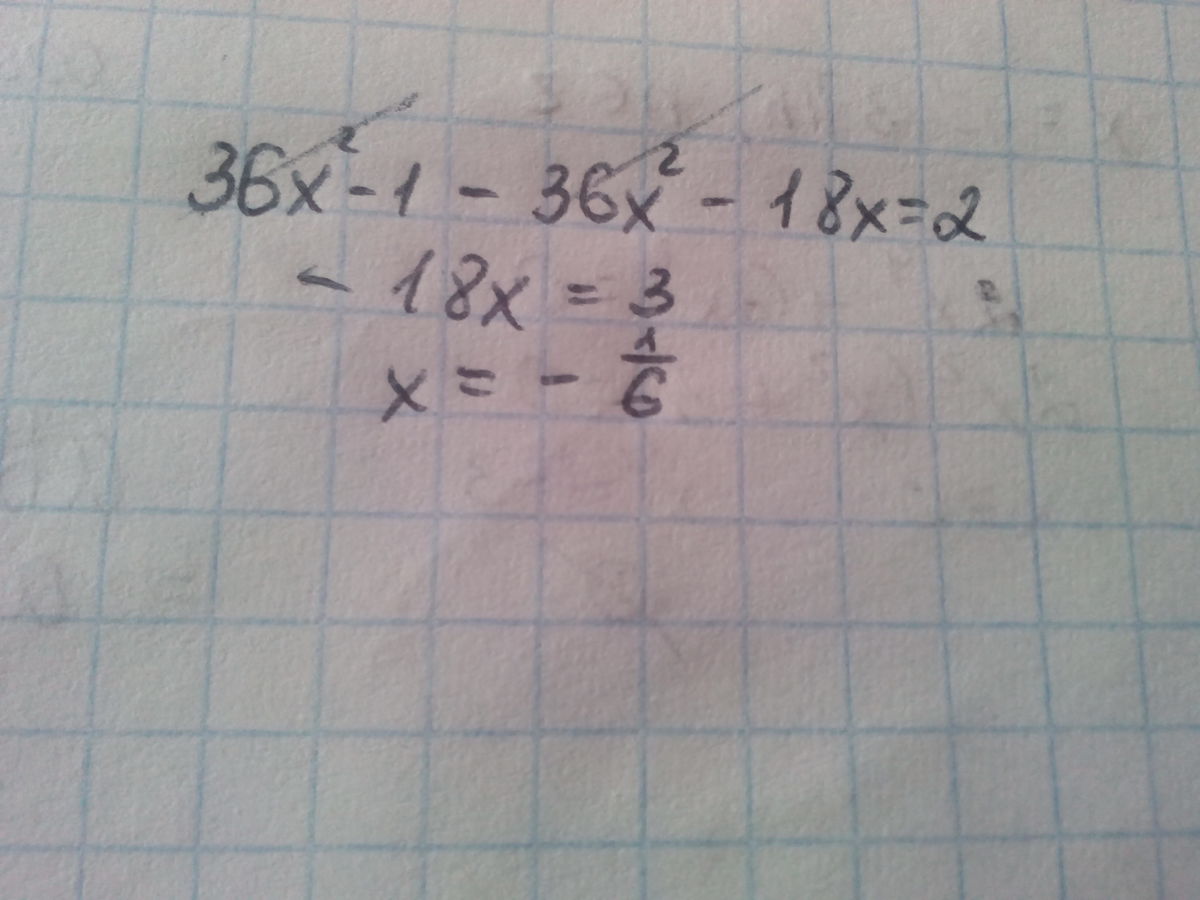 36x² - 1 - 36x² - 18x = 2
- 18x = 3
x = - 1/6